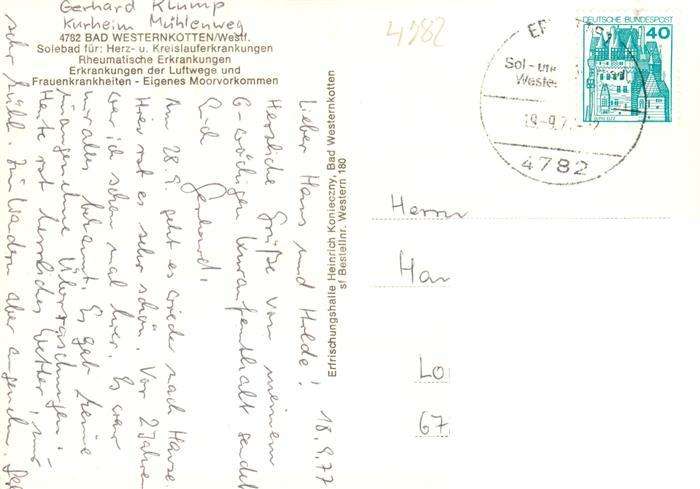 Gerhard Klump
Kurheim Mühlenweg
4782 BAD WESTERNKOTTEN/Westf.
Solebad für: Herz- u. Kreislauferkrankungen
Rheumatische Erkrankungen
Erkrankungen der Luftwege und
Frauenkrankheiten - Eigenes Moorvorkommen
4782
18.9.77
Lieber Hans und Hilde!
Herzliche Grüße von meinem
6-wöchigen Kuraufenthalt sendet
Euch Gerhard!
Am 28.9. geht es wieder nach Hause.
Hier ist es sehr schön. Vor 2 Jahren
war ich schon mal hier. Es war
mir alles bekannt. Es gab keine
unangenehme Überraschungen.
Heute ist herrliches Wetter, nur
sehr kühl. Zum Wandern aber angenehm.
Erfrischungshalle Heinrich Konieczny, Bad Westernkotten
sf Bestellnr. Western 180
DEUTSCHE BUNDESPOST
40
Sol- und
Weste
4782
Herrn
Han
Lo
67